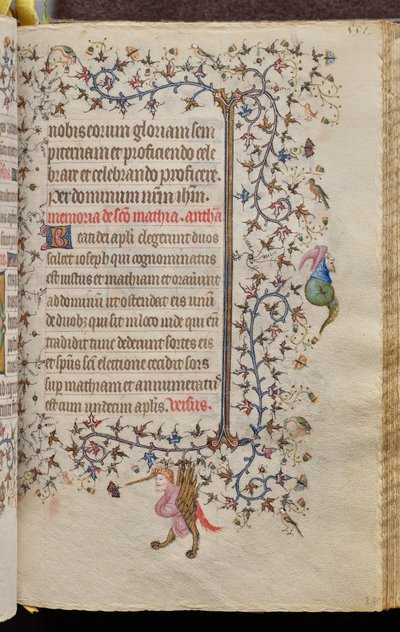 nobis eorum gloriam sem
piternam et proficiendo cele
brare et celebrando proficere
per dominum nrm ihm.
memoria de sco mathia. antha
Beati dei apli elegerunt duos
scilicet ioseph qui cognominatus
est iustus et mathiam et orauunt
ad dominum ut ostendat eis unum
de duobz qui sit in loco iude qui eum
tradidit tunc dederunt sortes eis
et spiritus sci electione cecidit sors
sup mathiam et annumeratus
est cum undecim aplis. versus.